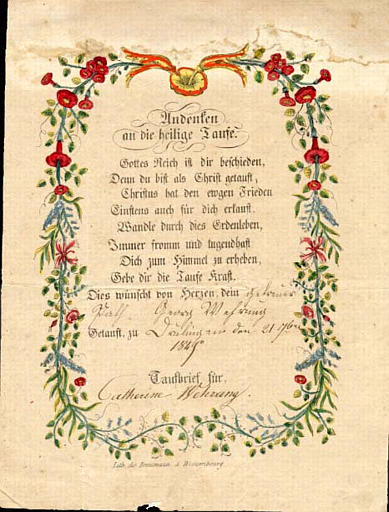 Andenken
an die heilige Taufe.
Gottes Reich ist dir beschieden,
Denn du bist als Christ getauft,
Christus hat den ewgen Frieden
Einstens auch für dich erkauft.
Wandle durch dies Erdenleben,
Immer fromm und tugendhaft
Dich zum Himmel zu erheben,
Gebe dir die Taufe Kraft.
Dies wünscht von Herzen, dein getreuer
Georg Wehrung
Getauft, zu Drulingen den 21
Taufbrief für,
Catherine Wehrung.
Lith. de Wissembourg